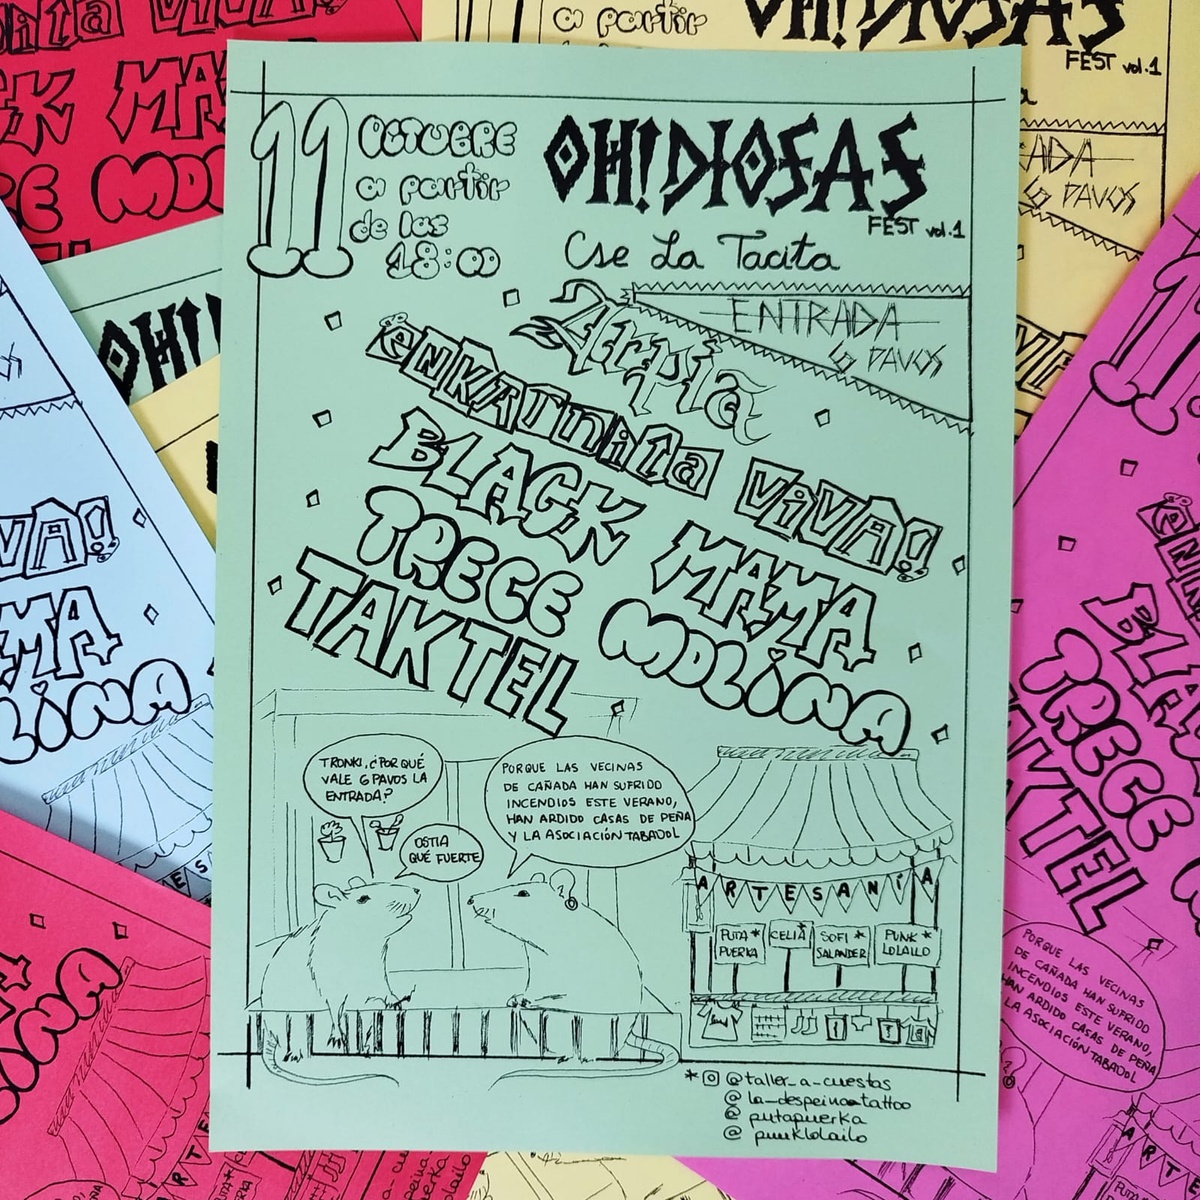 11 OCTUBRE
a partir
de las
18:00
OH!DIOSAS
FEST vol.1
Cse La Tacita
ENTRADA
6 PAVOS
Arpía
ENKARNITA VIVA!
BLACK MAMA
TRECE MOLINA
TAKTEL
TRONKI, ¿POR QUÉ
VALE 6 PAVOS LA
ENTRADA?
PORQUE LAS VECINAS
DE CAÑADA HAN SUFRIDO
INCENDIOS ESTE VERANO,
HAN ARDIDO CASAS DE PEÑA
Y LA ASOCIACIÓN TABADOL
OSTIA
QUÉ FUERTE
ARTESANÍA
PUTA*
PUERKA
CELIA*
SOFI *
SALANDER
PUNK *
LOLAILO
* @taller_a_cuestas
@la_despeina_tattoo
@putapuerka
@punklolailo
a partir
OH!DIOSAS
FEST vol.1
6 PAVOS
BLACK MAMA
TRECE MOLINA
TAKTEL
PORQUE LAS VECINAS
DE CAÑADA HAN SUFRIDO
INCENDIOS ESTE VERANO,
HAN ARDIDO CASAS DE PEÑA
Y LA ASOCIACIÓN TABADOL